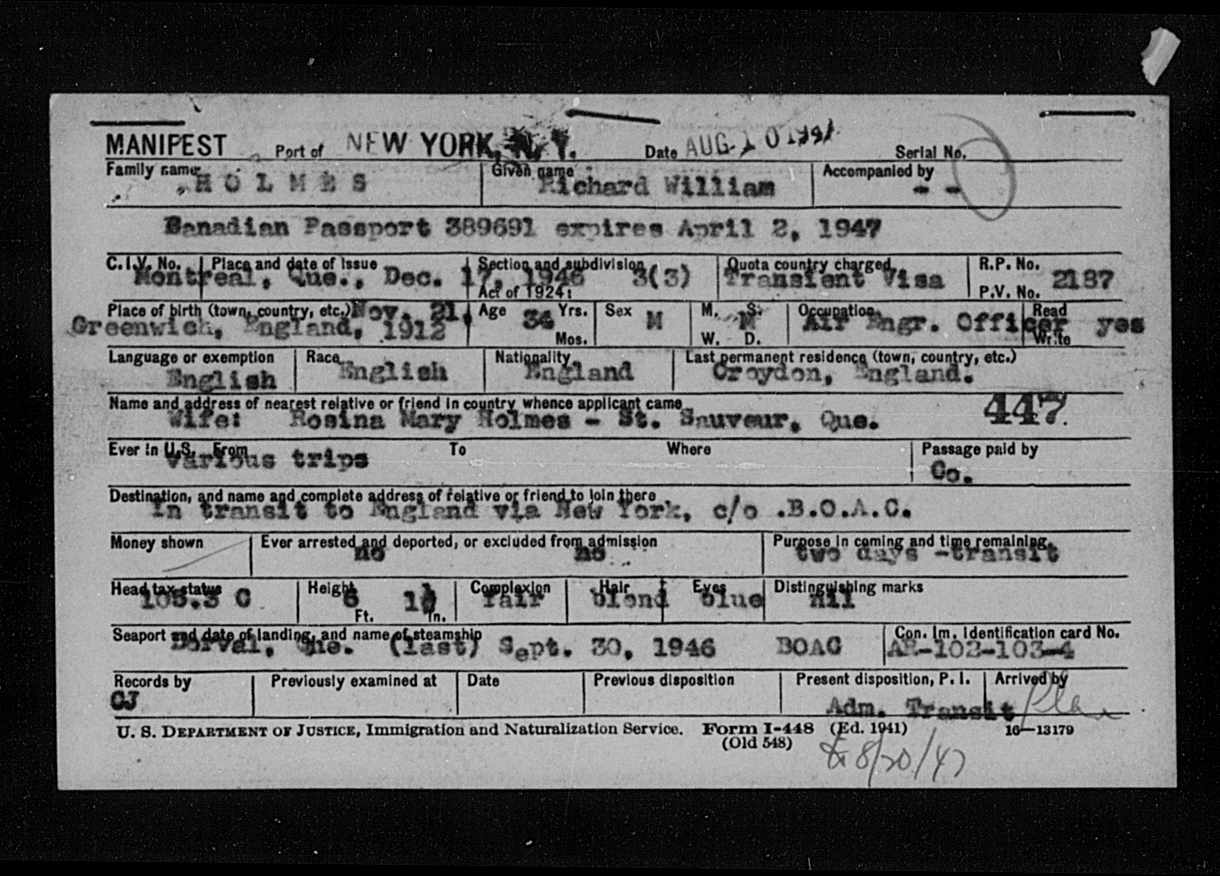 MANIFEST Port of NEW YORK, N. Y. Date AUG 10 1947 Serial No.
Family name HOLMES Given name Richard William Accompanied by - -
Canadian Passport 389691 expires April 2, 1947
C.I.V. No. Place and date of Issue Section and subdivision Quota country charged R.P. No.
Montreal, Que., Dec. 17, 1946 3(3) Transient Visa 2187
Act of 1924: P.V. No.
Place of birth (town, country, etc.) Nov. 21, Age 34 Yrs. Sex M M. S. M Occupation Read
Greenwich, England, 1912 Mos. W. D. Air Engr. Officer Write yes
Language or exemption Race Nationality Last permanent residence (town, country, etc.)
English English England Croydon, England.
Name and address of nearest relative or friend in country whence applicant came
Wife: Rosina Mary Holmes - St. Sauveur, Que. 447
Ever in U.S. From To Where Passage paid by
Various trips Co.
Destination, and name and complete address of relative or friend to join there
In transit to England via New York, c/o .B.O.A.C.
Money shown Ever arrested and deported, or excluded from admission Purpose in coming and time remaining
no no two days -transit
Head tax status Height Complexion Hair Eyes Distinguishing marks
105.3 C Ft. In. fair blond blue nil
Seaport and date of landing, and name of steamship Con. Im. Identification card No.
Dorval, Que. (last) Sept. 30, 1946 BOAC AR-102-103-4
Records by Previously examined at Date Previous disposition Present disposition, P. I. Arrived by
CJ Adm. Transit
U. S. DEPARTMENT OF JUSTICE, Immigration and Naturalization Service. Form I-448 (Ed. 1941) 16—13179
(Old 548)
8/20/47